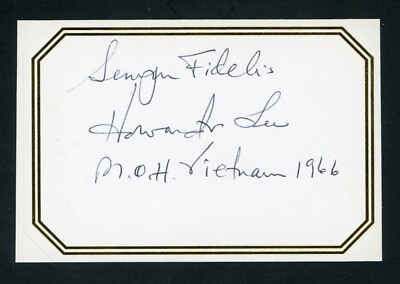 Semper Fidelis
Howard V. Lee
M.O.H. Vietnam 1966